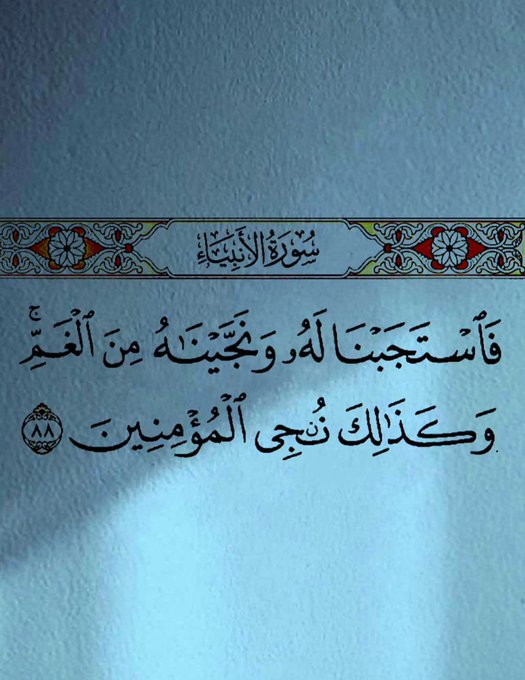 سُورَةُ الأَنبِيَاءِ
فَٱسْتَجَبْنَا لَهُۥ وَنَجَّيْنَٰهُ مِنَ ٱلْغَمِّ ۚ
وَكَذَٰلِكَ نُۨجِى ٱلْمُؤْمِنِينَ ٨٨